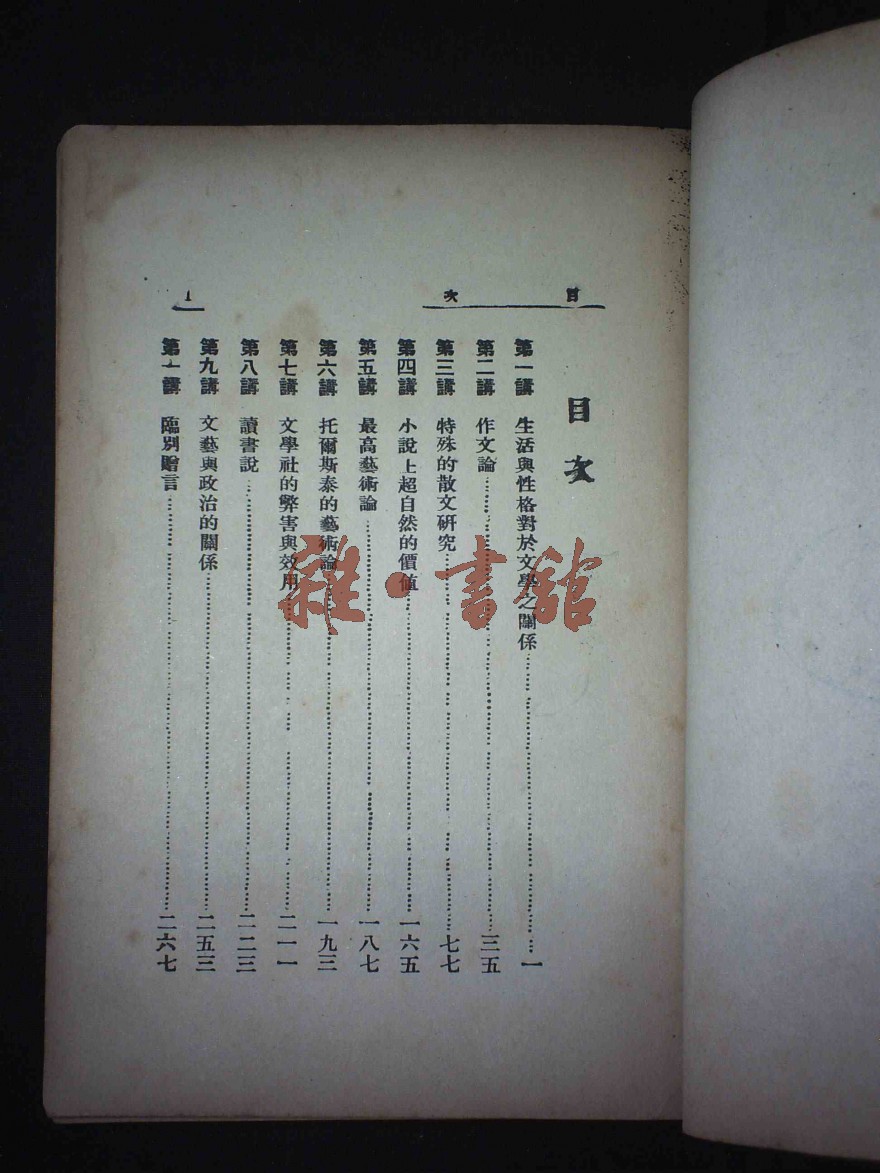 目次
1
目次
第一講 生活與性格對於文學之關係 一
第二講 作文論 三五
第三講 特殊的散文研究 七七
第四講 小說上超自然的價値 一六五
第五講 最高藝術論 一八七
第六講 托爾斯泰的藝術論 一九三
第七講 文學社的弊害與效用 二一一
第八講 讀書說 二二三
第九講 文藝與政治的關係 二五三
第十講 臨別贈言 二六七
雜·書館